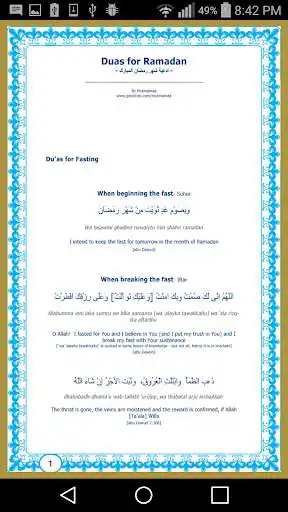 49% 8:42 PM
Duas for Ramadan
- أدعية شهر رمضان المبارك -
By Mulmaniaq
Du'as for Fasting
When beginning the fast- Suhur
وَبِصَوْمِ غَدٍ نَّوَيْتُ مِنْ شَهْرِ رَمَضَانَ
Wa bisawmi ghadinn nawaiytu min shahri ramadan
I intend to keep the fast for tomorrow in the month of Ramadan
[abu Dawud]
When breaking the fast- Iftar
اللَّهُمَّ اِنِّى لَكَ صُمْتُ وَبِكَ امَنْتُ [وَعَلَيْكَ تَوَكَّلْتُ] وَعَلَى رِزْقِكَ اَفْطَرْتُ
Allahumma inni laka sumtu wa bika aamantu [wa 'alayka tawakkaltu] wa 'ala rizq-
ika aftarthu
O Allah! I fasted for You and I believe in You [and I put my trust in You] and I
break my fast with Your sustenance
["wa 'alayka tawakkaltu" is quoted in some books of knowledge - but not all, hence it is in brackets]
[abu Dawud]
ذَهَبَ الظَّمَأُ وَابْتَلَّتِ الْعُرُوْقُ، وَثَبَتَ الْأَجْرُ إِنْ شَاءَ اللهُ
The thirst is gone, the veins are moistened and the reward is confirmed, if Allah
[Ta'ala] Wills
[abu Dawud 2:306]
1